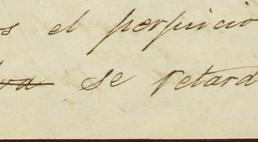 s el perjuicio
va se retard